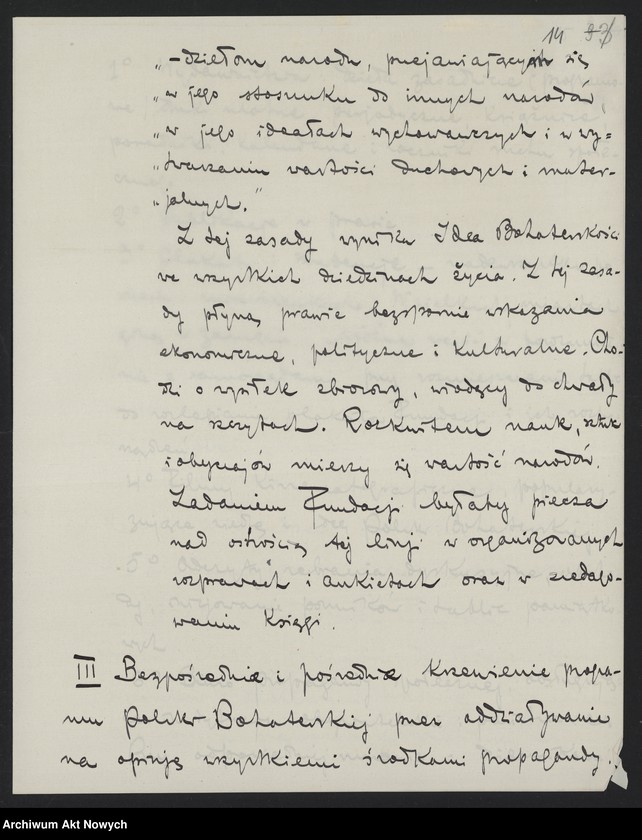 14
„-dziełom narodu, przejawiających się
„w jego stosunku do innych narodów,
„w jego ideałach wychowawczych i w wy=
„twarzaniu wartości duchowych i mater-
„jalnych."
Z tej zasady wynika Idea Bohaterskości
we wszystkich dziedzinach życia. Z tej zasa-
dy płyną prawie bezspornie wskazania
ekonomiczne, polityczne i kulturalne. Cho-
dzi o wysiłek zbiorowy, wiodący do chwały
na szczytach. Rozkwitem nauk, sztuk
i obyczajów mierzy się wartość narodów.
Zadaniem Fundacji byłaby piecza
nad tej linji w organizowanych
rozprawach i ankietach oraz w zredago-
waniu Księgi.
III Bezpośrednie i pośrednie krzewienie progra-
mu Polski Bohaterskiej przez oddziaływanie
na opinję wszystkiemi środkami propagandy.
Archiwum Akt Nowych